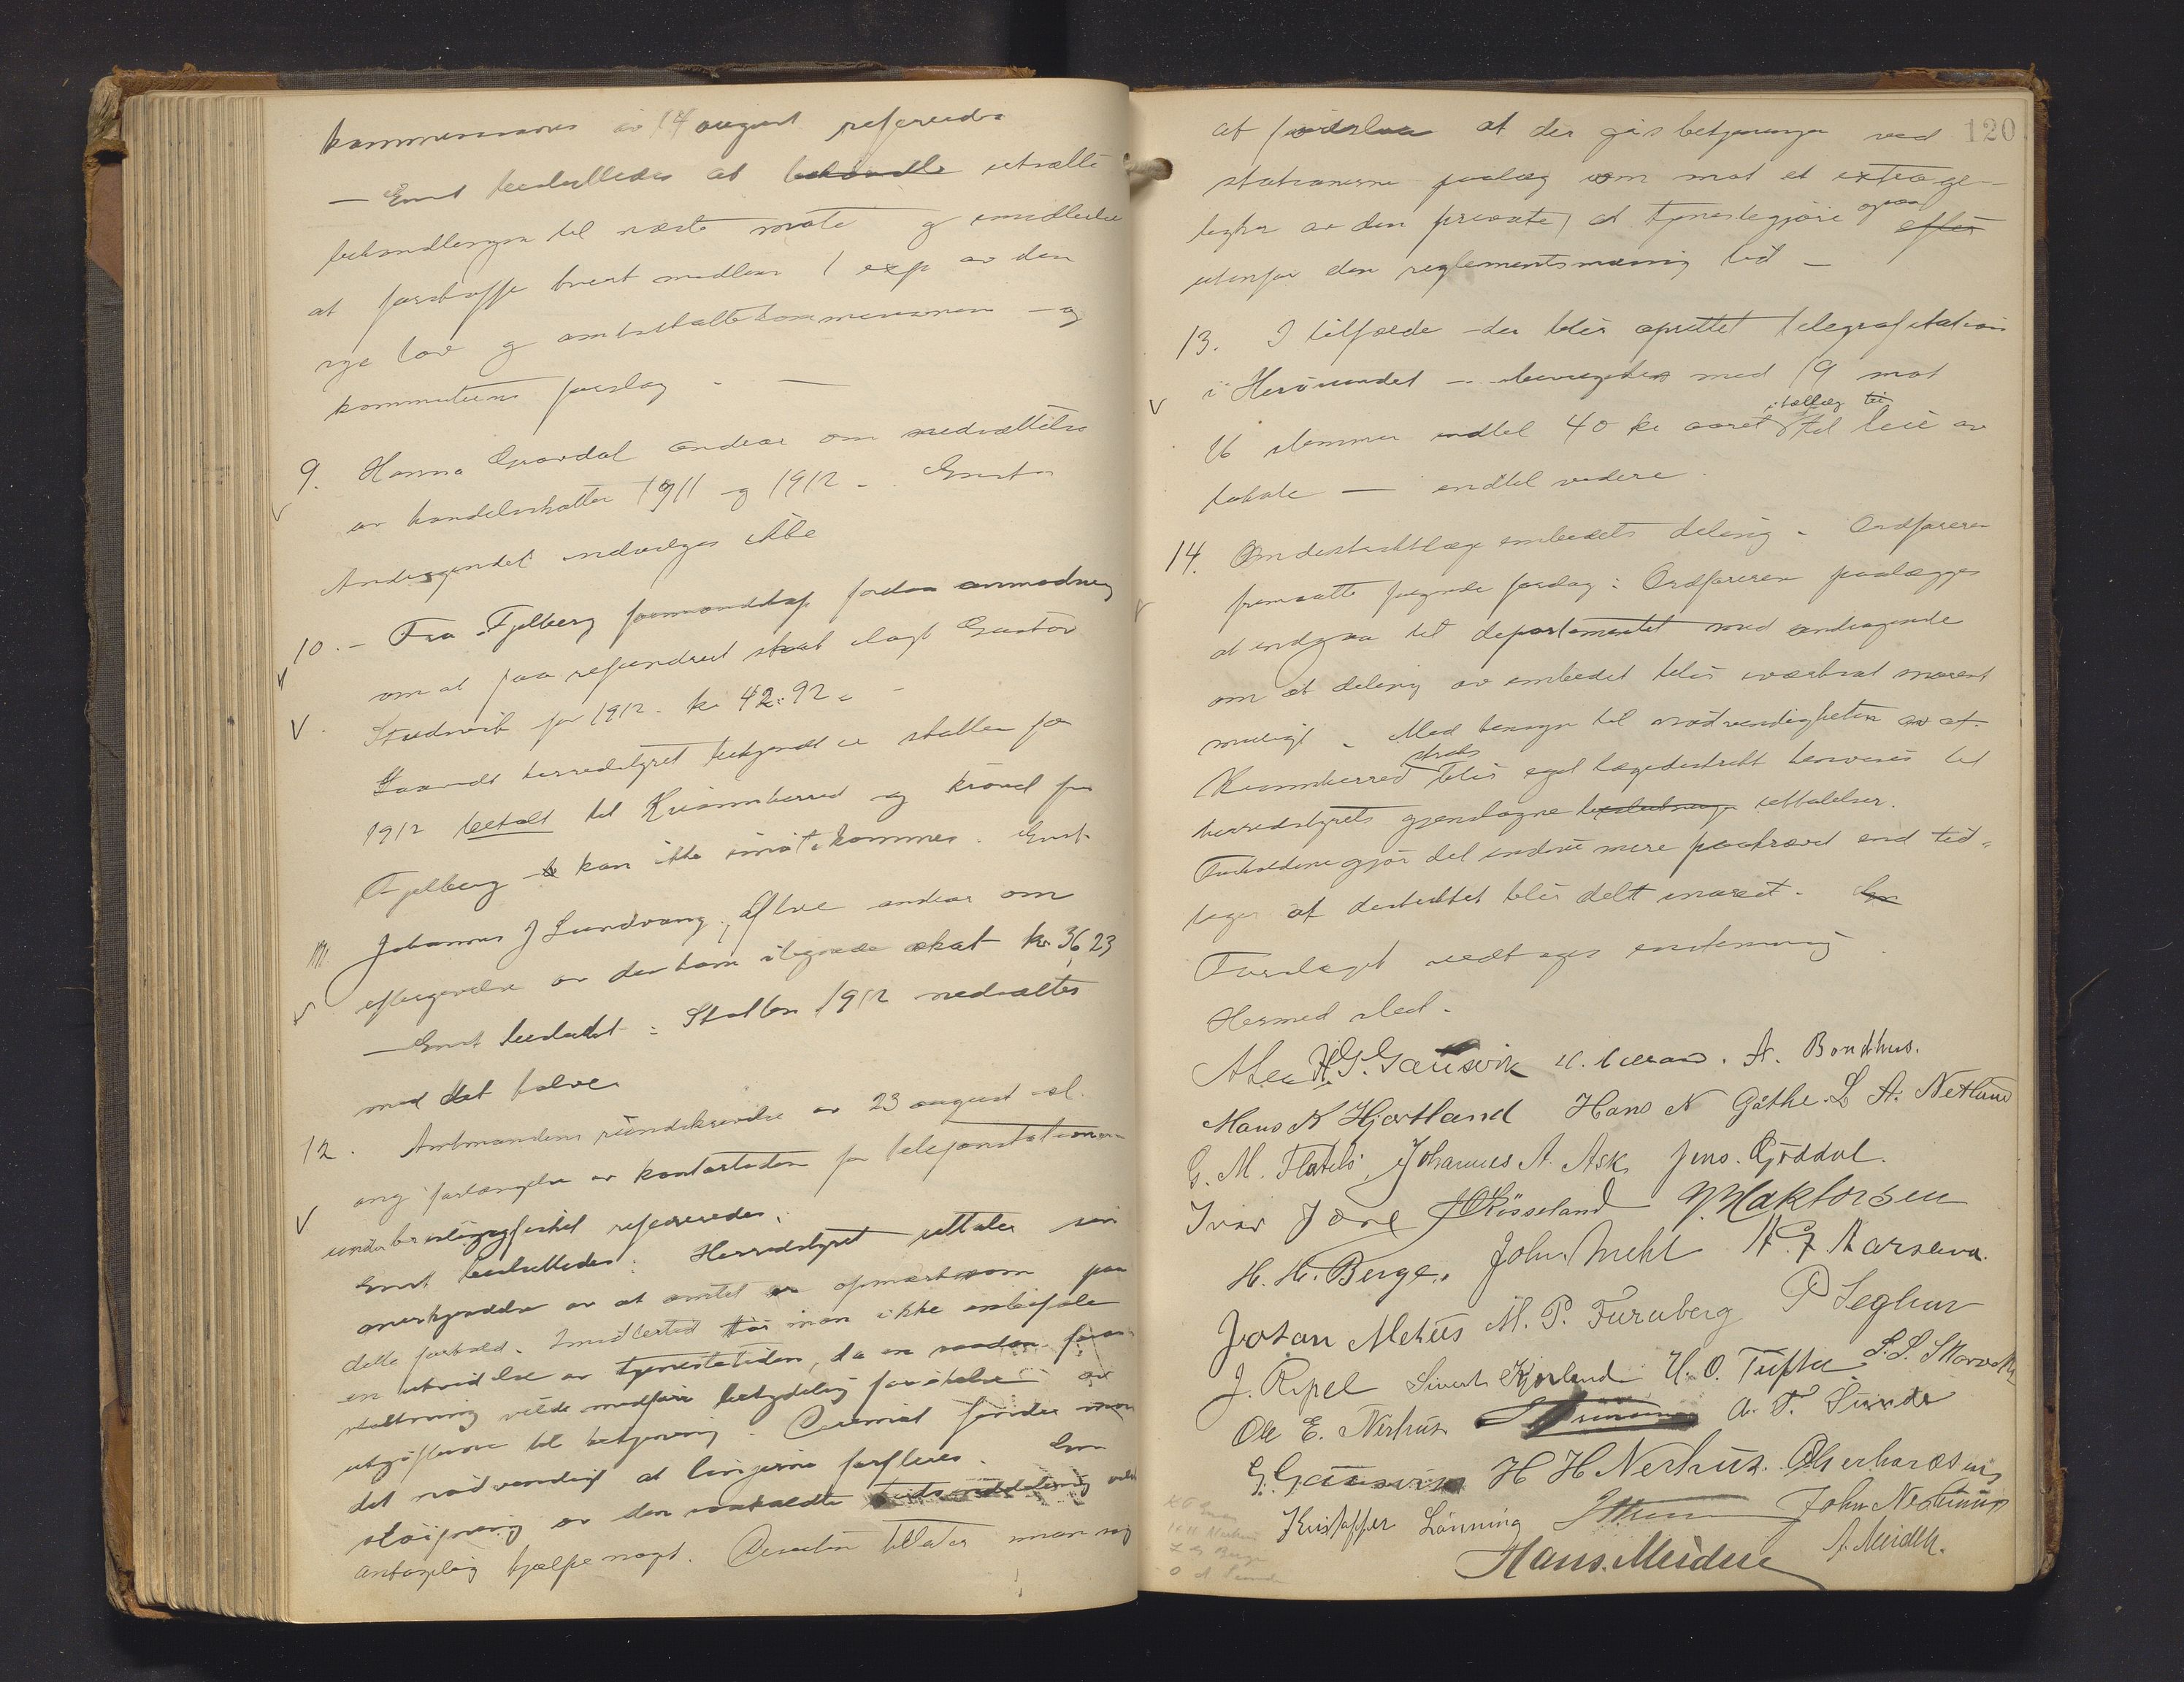 kommissionens av 14 august refereredes
— Enst besluttedes at behandle utsætte
behandlingen til næste møte og imidlertid
at forskaffe hvert medlem 1 exp av den
nye lov og amtsskattekommissionen — og
kommiteens forslag. —
9. Hanna Gravdal andrar om nedsættelse
av handelsskatten 1911 og 1912 - Enst
Andragendet indvilges ikke
10. - Fra Fjelberg formandskap forelaa anmodning
om at faa refundreret skat ilagt Gustav
Studevik for 1912 - kr 42:92 -
Saavidt herredstyret bekjendt er skatten for
1912 betalt til Kvinnherred og kravet fra
Fjelberg kan ikke imøtekommes. Enst.
11. Johannes J Sundvang, Ølve andrar om
eftergivelse av den ham ilignede skat kr 36,23
— Enst besluttet: Skatten 1912 nedsættes
med det halve
12. Amtmandens rundskrivelse av 23 august sl.
ang forlængelse av kontortiden for telefonstationerne
under brislingfisket refereredes.
Enst besluttedes: Herredstyret uttaler sin
anerkjendelse av at amtet er opmerksom paa
dette forhold. Imidlertid tør man ikke anbefale
en utvidelse av tjenestetiden, da en saadan foran-
staltning vilde medføre betydelig forøkelse av
utgifterne til betjening. Derimot finder man
det nødvendigt at linjerne forfleres. En
sløifning av den saakaldte tidsinddeling vilde
antagelig hjælpe noget. Desuten tillater man sig
120
at foreslaa at der gis betjeningen ved
stationerne paalæg om mot et extrage-
byhr av den private, at tjenestegjøre ogsaa efter
utenfor den reglementsmæssig tid -
13. I tilfælde der blir oprettet telegrafstation
i Herøsundet - bevilgedes med 19 mot
16 stemmer indtil 40 kr aaret i tillæg til til leie av
lokale — indtil videre.
14. Om distriktslægeembedets deling - Ordføreren
fremsatte følgende forslag: Ordføreren paalægges
at indgaa til departementet med andragende
om at deling av embedet blir iverksat snarest
muligt. Med hensyn til nødvendigheten av at
Kvinnherred straks blir eget lægedistrikt henvises til
herredstyrets gjentagne beslutninger uttalelser.
Forholdene gjør det endnu mere paakrævet end tid-
ligere at distriktet blir delt snarest.
Forslaget vedtages enstemmig
Hermed slut.
Alex H.G. Gausvik A. Bondhus.
Hans K Hjortland Hans N Gøthe L A. Netland
G. M. Flatebø Johannes A. Ask Jens Gjøddal.
Ivar Jore J O Røsseland N. Haktorsen
H. H. Berge. John Mehl
Johan Mehus M. P. Furuberg P Seglem
J. Ripel Sivert Kjerland H. O. Tufte
Ole E. Nerhus A. T. Sunde
G. Gausvik H H Nerhus.
Kristoffer Lønning John Nerhus
Hans Meidell A. Meidell.